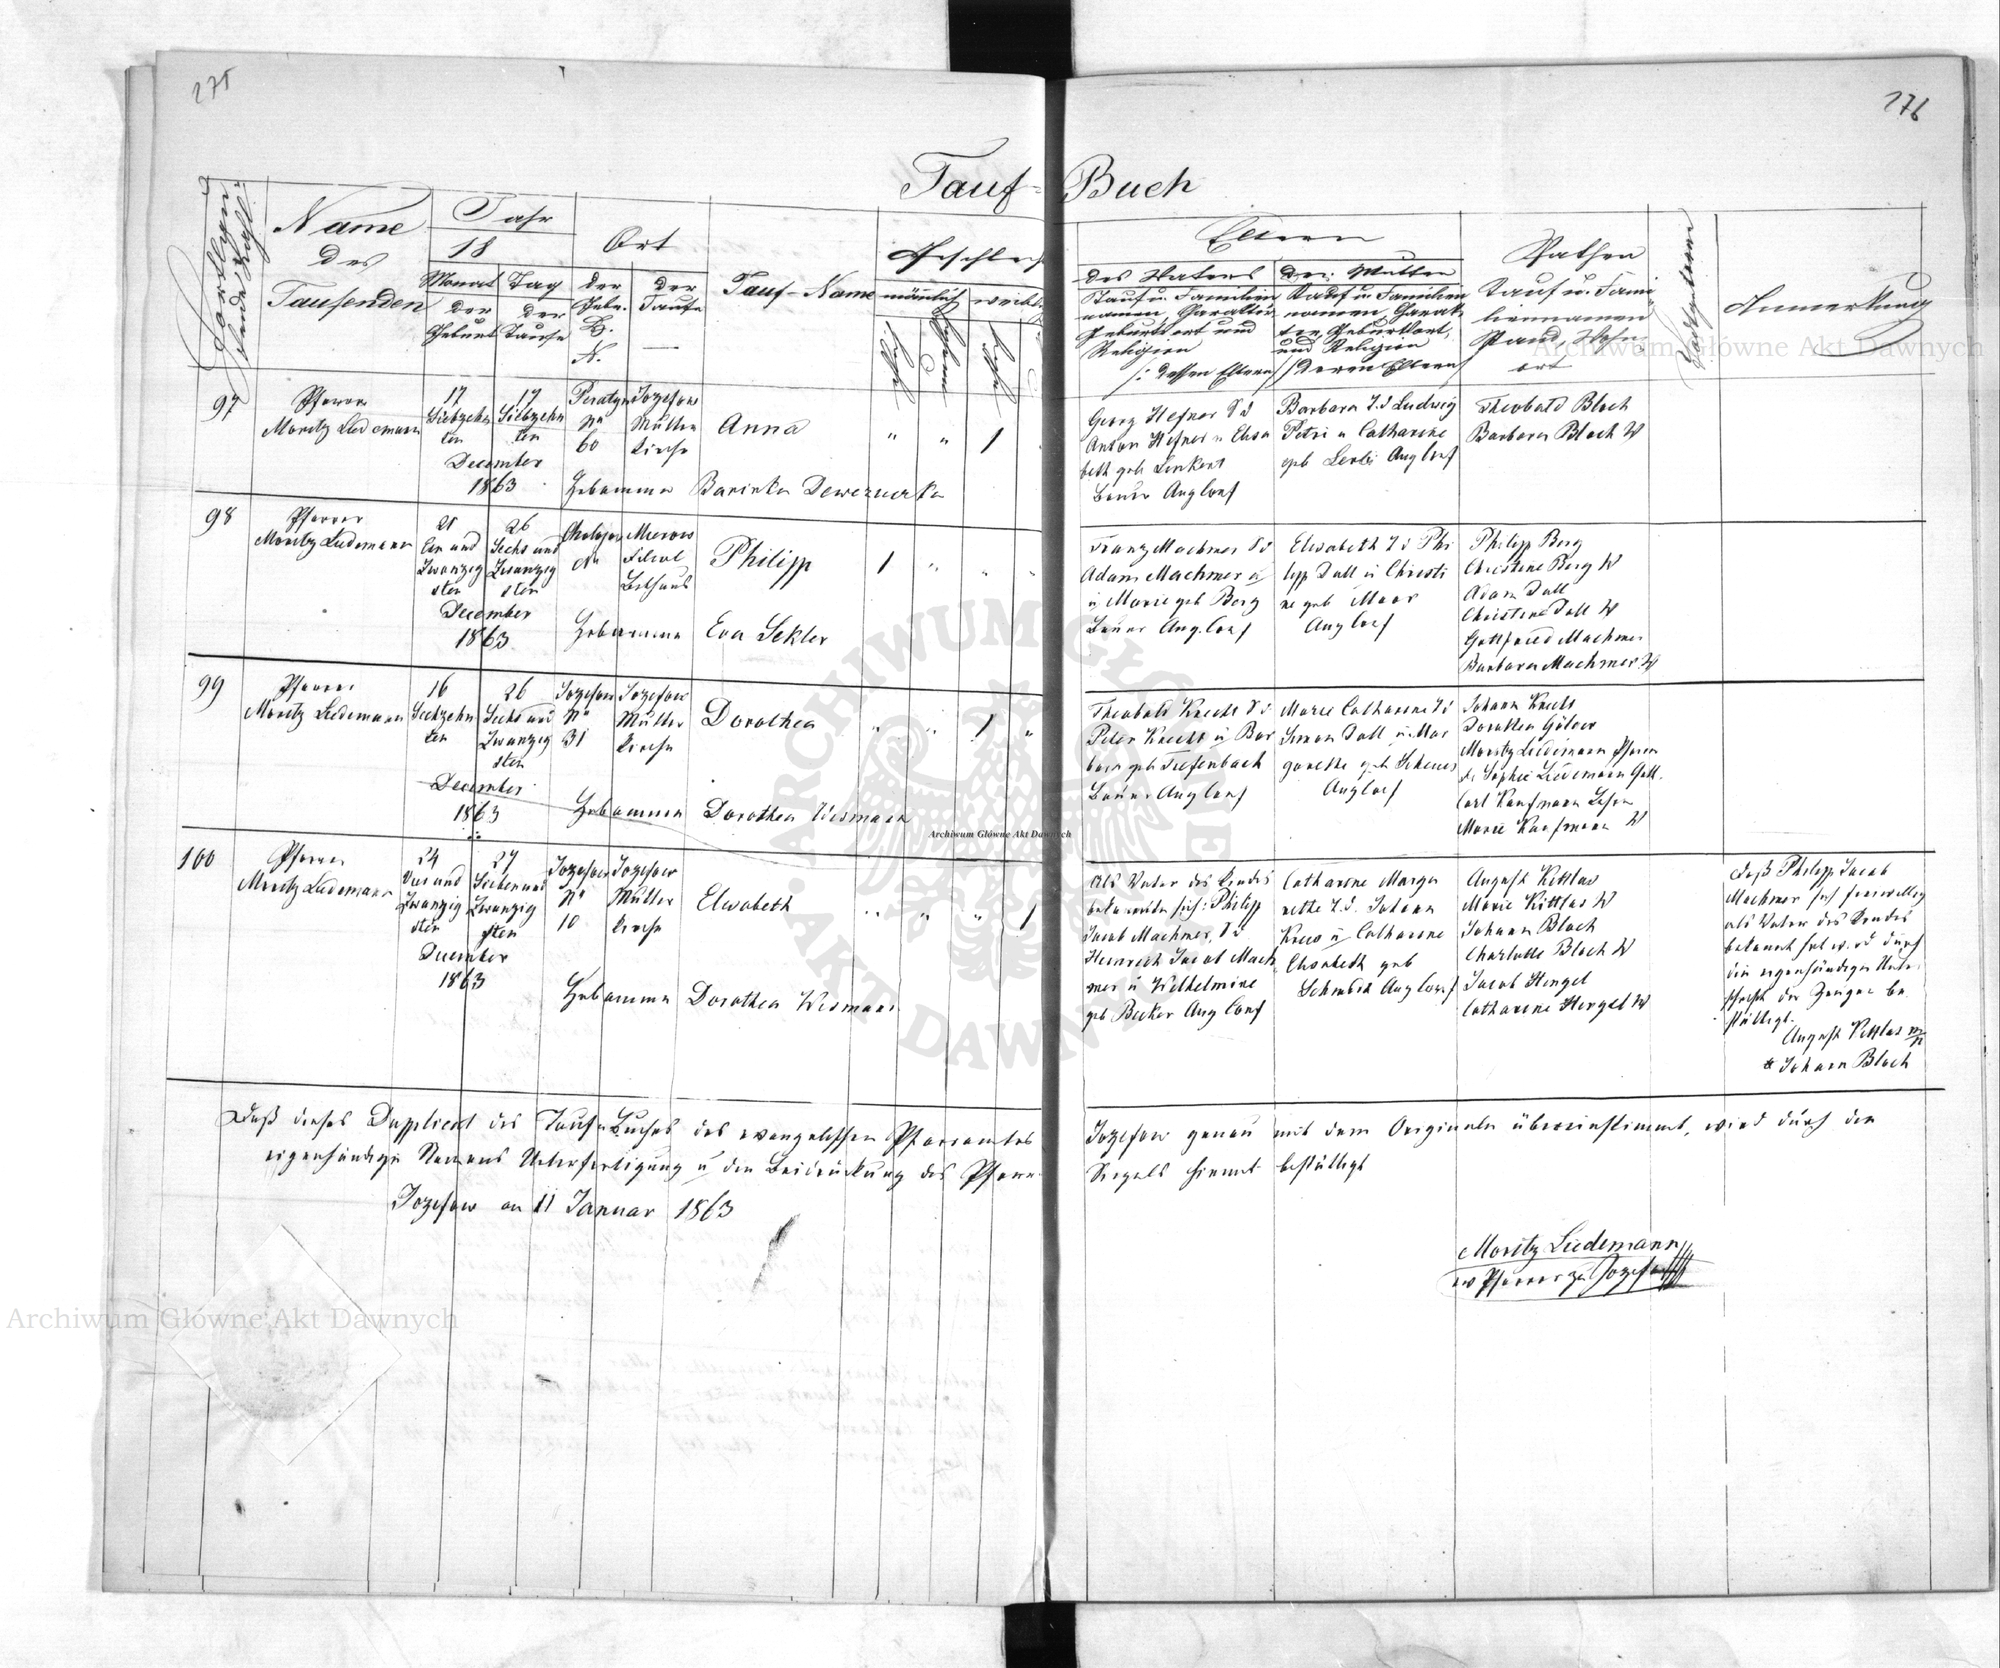 275
276
Tauf-Buch
Fortlaufende Zahl
Name
des
Taufenden
Jahr
18
Monat
der
Geburt
Tag
der
Taufe
Ort
der
Gebu.
H.
N.
der
Taufe
Tauf-Name
Geschlech
männlich
weibl.
Eltern
des Vaters
Tauf u. Familien
namen, Charakter
Geburtsort und
Religion
/: dessen Eltern
der Mutter
Tauf u. Familien
namen, Charak
ter, Geburtsort,
und Religion
/: deren Eltern
Pathen
Tauf u. Fami
liennamen
Stand, Wohn
ort
Anmerkung
97
Pfarrer
Moritz Liedemann
17
Siebzehn
ten
17
Siebzehn
ten
December
1863
No
60
Jozefow
Mutter
kirche
Anna
" " 1
Hebamme
Georg Hefner S d
Anton Hefner u Elisa
beth geb Linkert
Bauer Aug Conf
Barbara T. d Ludwig
Petri u Catharine
geb Aug Conf
Theobald Bloch
Barbara Bloch W
98
Pfarrer
Moritz Liedemann
21
Ein und
Zwanzig
sten
26
Sechs und
Zwanzig
sten
December
1863
Filial
Bethaus
Philipp
1 " " "
Hebamme Eva Sekler
Franz Machmer S d
Adam Machmer
u Marie geb Berg
Bauer Aug. Conf
Elisabeth T d Phi
lipp Dall u Christi
ne geb
Aug Conf
Philipp Berg
Christine Berg W
Adam Dall
Christine Dall W
Gottfried Machmer
Barbara Machmer W
99
Pfarrer
Moritz Liedemann
16
Sechzehn
ten
26
Sechs und
Zwanzig
sten
December
1863
Jozefow
No
31
Jozefow
Mutter
kirche
Dorothea
" " 1 "
Hebamme Dorothea Wismann
Theobald Knecht S d
Peter Knecht u Bar
bara geb Tiefenbach
Bauer Aug Conf
Marie Catharine T d
Simon Dall u Mar
garethe geb
Aug Conf
Johann Knecht
Dorothea
Moritz Liedemann Pfarrer
Sophie Liedemann Gatt.
Carl Kaufmann
Marie Kaufmann W
100
Pfarrer
Moritz Liedemann
24
Vier und
Zwanzig
sten
27
Sieben und
Zwanzig
sten
December
1863
Jozefow
No
10
Jozefow
Mutter
kirche
Elisabeth
" " " 1
Hebamme Dorothea Wismann
Als Vater des Kindes
bekannte sich: Philipp
Jacob Machmer, S d
Heinrich Jacob Mach
mer u Wilhelmine
geb Becker Aug Conf
Catharine Marga
rethe T. d. Johann
u Catharine
Elisabeth geb
Aug Conf
August Kittlas
Marie Kittlas W
Johann Bloch
Charlotte Bloch W
Jacob Hengel
Catharine Hengel W
Daß Philipp Jacob
Machmer sich freiwillig
als Vater des Kindes
bekannt hat wird durch
die eigenhändige Unter
schrift der Zeugen be
stättigt.
August Kittlas
Johann Bloch
Daß dieses Dupplicat des Tauf Buches des evangelischen Pfarramtes Jozefow genau mit dem Originale übereinstimmt, wird durch die
eigenhändige Namens Unterfertigung u die Beidrückung des Pfarr Siegels hiemit bestättigt
Jozefow am 11 Januar 1863
Moritz Liedemann
ev Pfarrer zu Jozefow
Archiwum Główne Akt Dawnych
ARCHIWUM GŁÓWNE AKT DAWNYCH
Archiwum Główne Akt Dawnych
Archiwum Główne Akt Dawnych